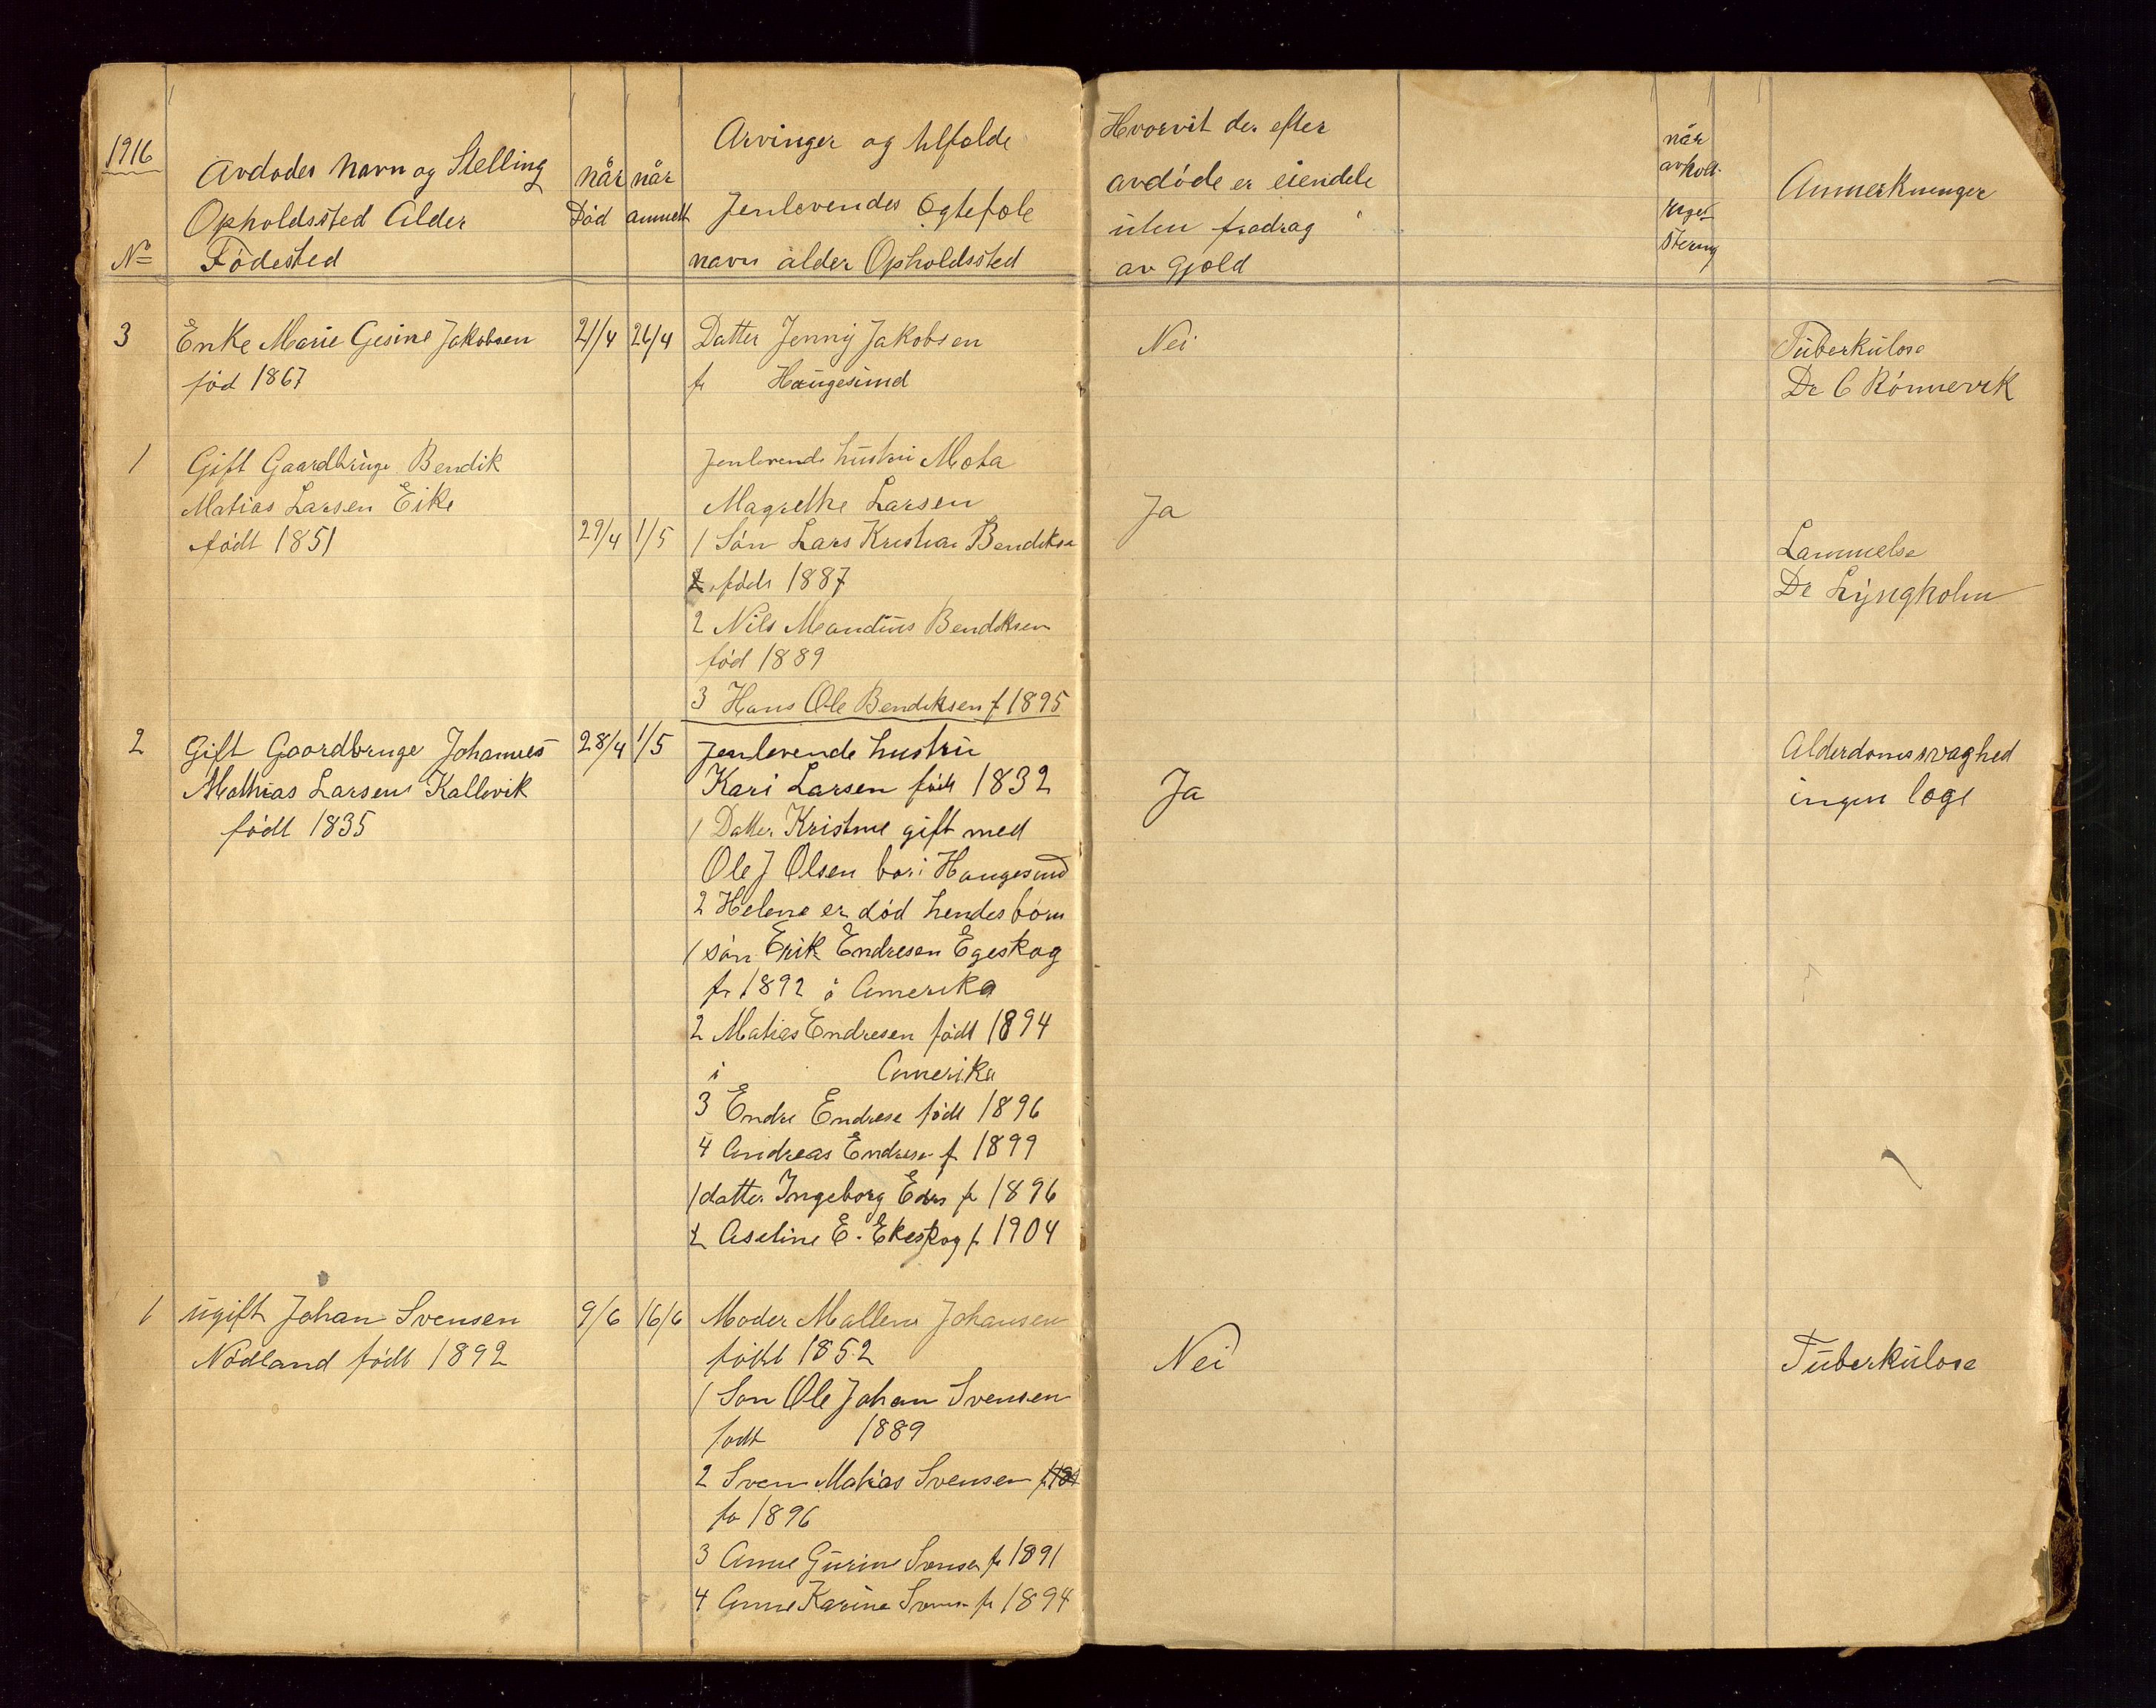 1916
Avdødes Navn og Stelling
Opholdssted Alder
Nº Födested
når Död
når anmelt
Arvinger og tilfelde
Jenlevendes Ögtefole
navn alder Opholdssted
Hvorvit der efter
avdöde er eiendele
uten fradrag
av gjæld
når
avholt
reget
stering
Anmerkninger
3 Enke Marie Gesine Jakobsen 21/4 26/4 Datter Jenny Jakobsen Nei Tuberkulose
föd 1867 f Haugesund Dr C Rönnevik
1 Gift Gaardbruge Bendik Jenlevende hustru
Matias Larsen Eike Magrethe Larsen Ja
födt 1851 29/4 1/5 1 Sön Lars Kristian Bendikse Lammelse
födt 1887 Dr Lyngholm
2 Nils Mandius Bendiksen
föd 1889
3 Hans Ole Bendiksen f 1895
2 Gift Gaardbruge Johannes 28/4 1/5 Jenlevende hustru Alderdomssvaghed
Mathias Larsen Kallevik Kari Larsen födt 1832 Ja ingen lege
födt 1835 1 Datter Kristine gift med
Ole J Olsen bor i Haugesund
2 Helene er död hendes börn
1 sön Erik Endresen Egeskog
f 1892 i Amerika
2 Matias Endresen födt 1894
i Amerika
3 Endre Endrese födt 1896
4 Andreas Endrese f 1899
1 datter Ingeborg f 1896
2 Aseline E. Ekeskog f 1904
1 ugift Johan Svensen 9/6 16/6 Moder Mallene Johansen
Nödland födt 1892 födt 1852 Nei Tuberkulose
1 Son Ole Johan Svensen
födt 1889
2 Sven Matias Svensen
fø 1896
3 Anne Gurine Svensen f 1891
4 Anne Karine f 1894